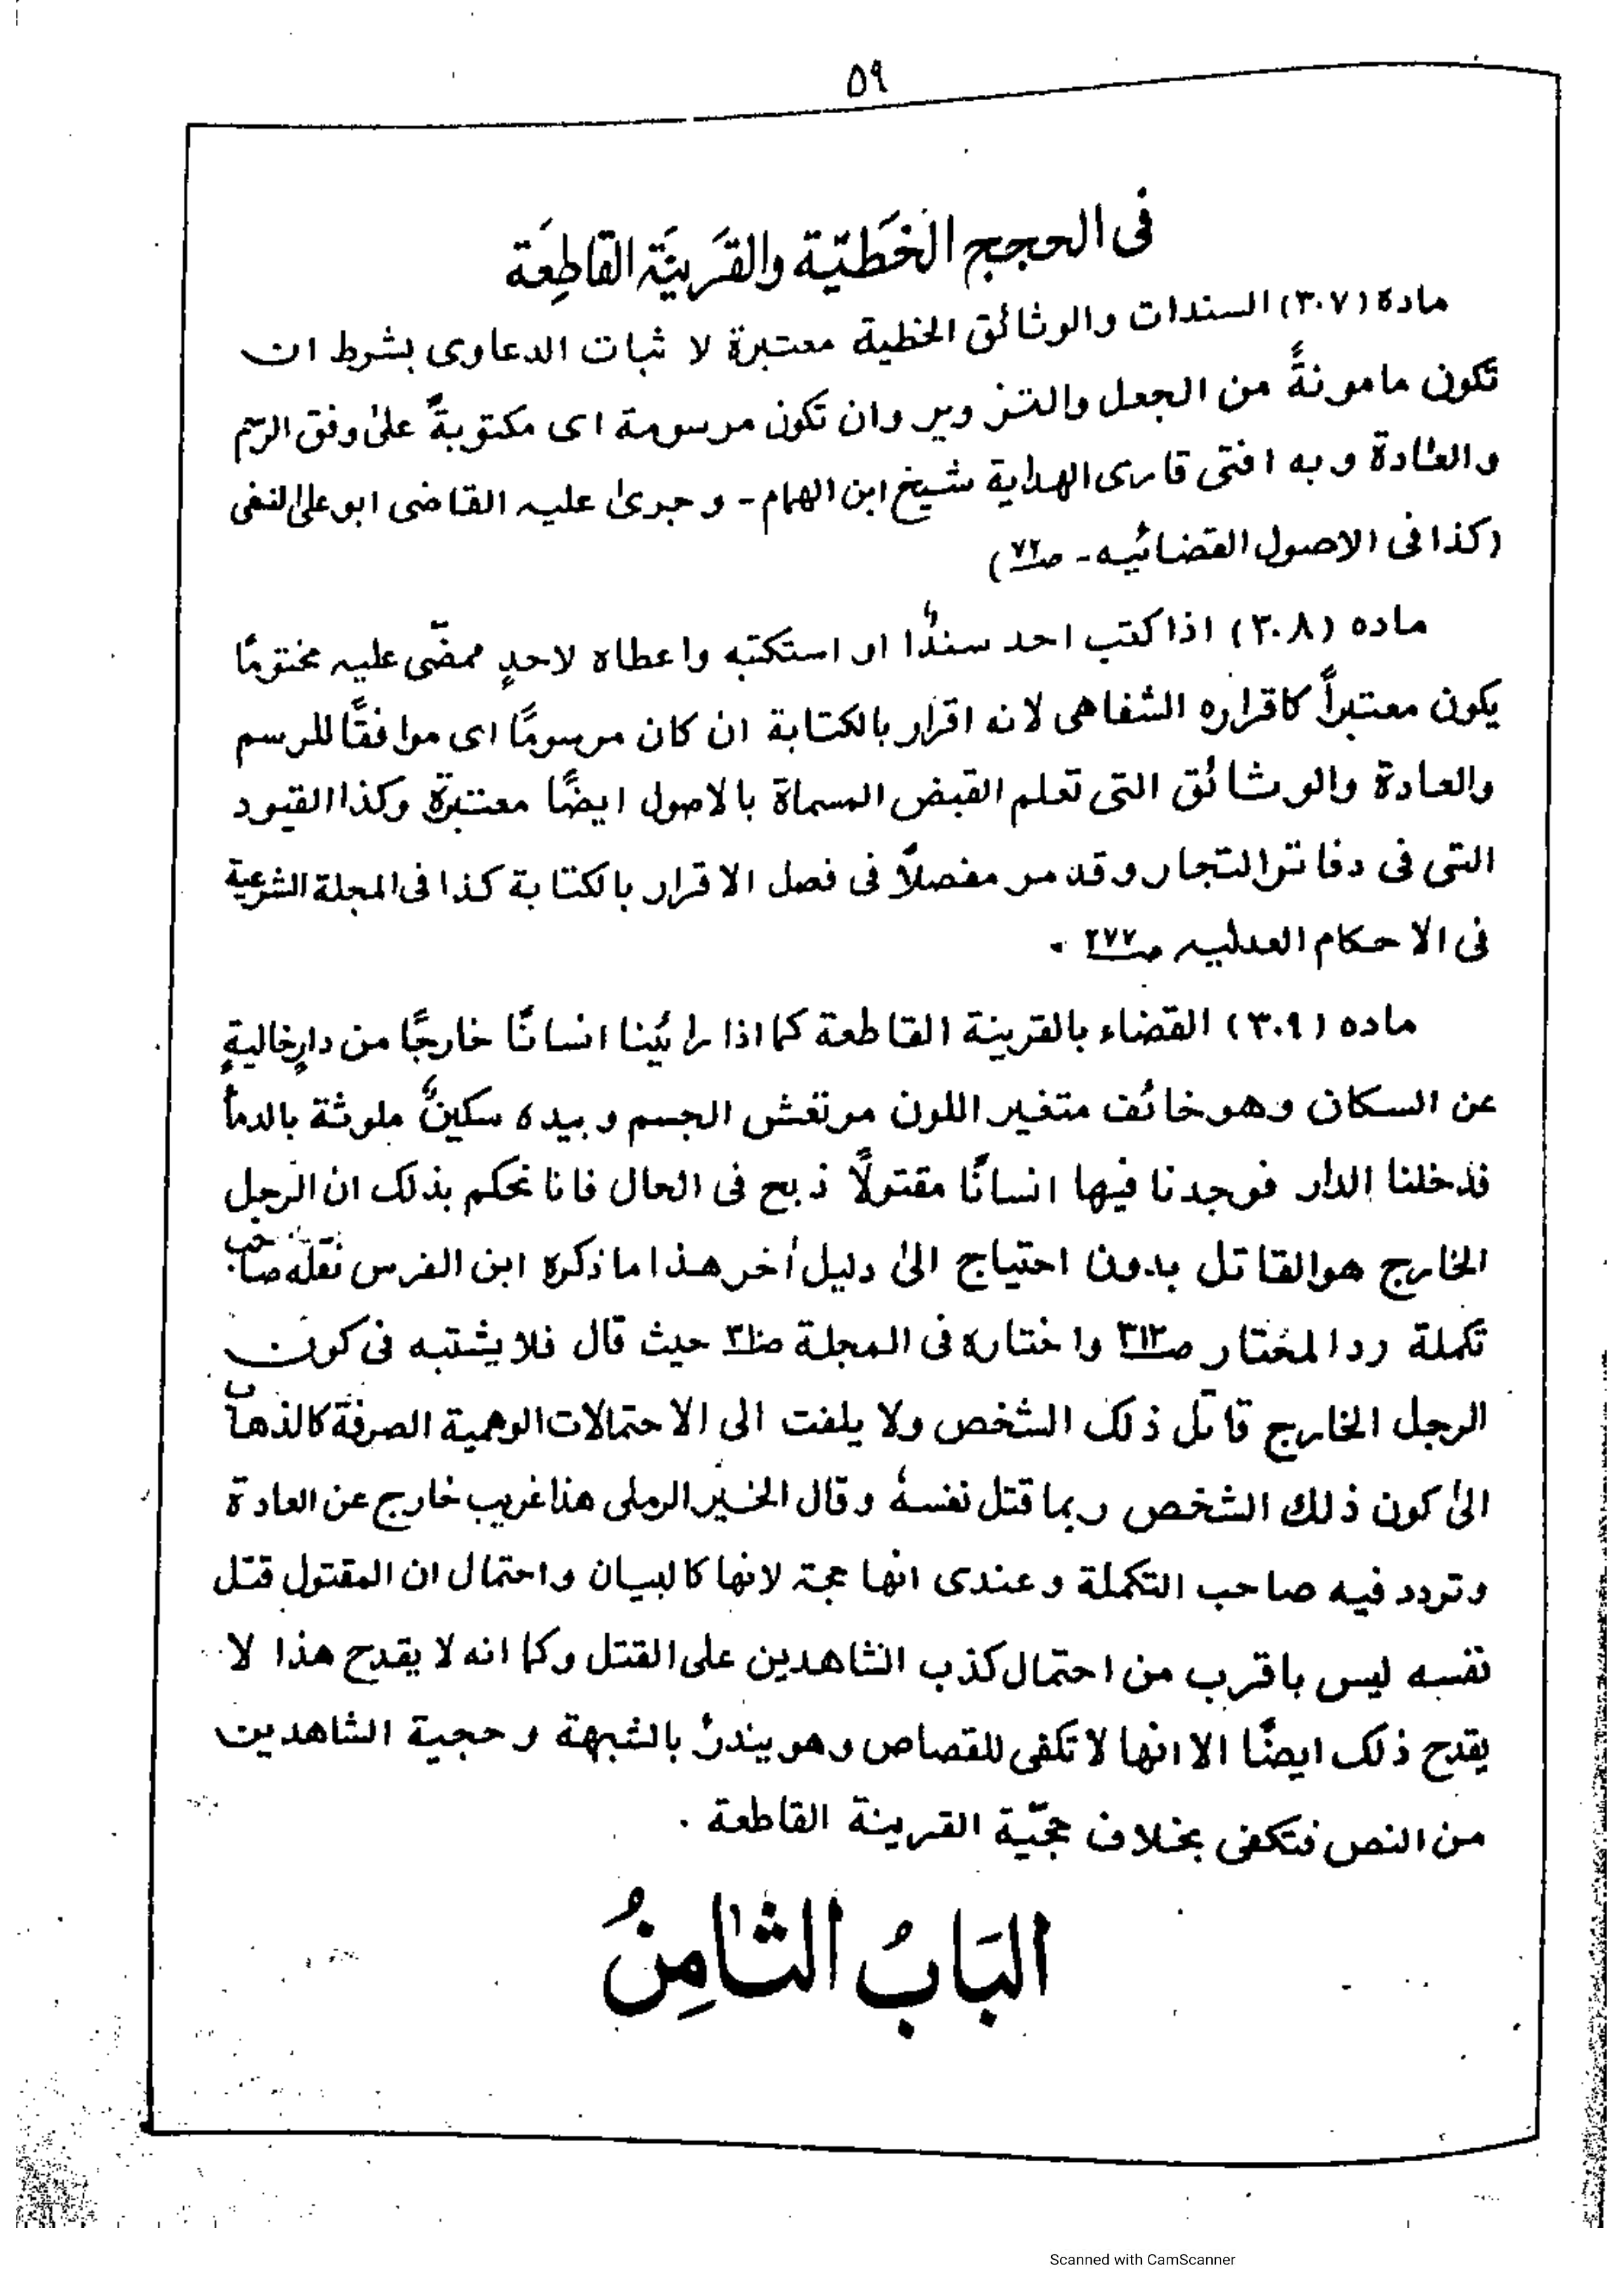 ٥٩
فى الحجج الخَطيّة والقَرينَة القَاطِعَة
مادة (٣٠٧) السندات والوثائق الخطية معتبرة لا ثبات الدعاوى بشرط ان
تكون مامونةً من الجعل والتزوير وان تكون مرسومة اى مكتوبةً علىٰ وفق الرسم
والعادة و به افتى قارى الهداية شيخ ابن الهمام - و جرىٰ عليه القاضى ابو على النسفى
(كذا فى الاصول القضائيه - صـ٧٢)
ماده (٣٠٨) اذا كتب احد سندًا او استكتبه واعطاه لاحدٍ ممضّى عليه مختومًا
يكون معتبراً كاقراره الشفاهى لانه اقرار بالكتابة ان كان مرسومًا اى موافقًا للرسم
والعادة والوثائق التى تعلم القبض المسماة بالاصول ايضًا معتبرة وكذا القيود
التى فى دفاتر التجار وقد مر مفصلاً فى فصل الاقرار بالكتابة كذا فى المجلة الشرعية
فى الاحكام العدليه صـ٢٧٧ ٠
ماده (٣٠٩) القضاء بالقرينة القاطعة كما اذا رائينا انسانًا خارجًا من دارٍ خاليةٍ
عن السكان وهو خائف متغير اللون مرتعش الجسم و بيده سكينٌ ملوثة بالدماً
فدخلنا الدار فوجدنا فيها انسانًا مقتولًا ذبح فى الحال فانا نحكم بذلك ان الرجل
الخارج هو القاتل بدون احتياج الىٰ دليل اٰخر هذا ما ذكره ابن الفرس نقله صاحب
تكملة رد المختار صـ٣١٢ واختاره فى المجلة حيث قال فلا يشتبه فى كون
الرجل الخارج قاتل ذلك الشخص ولا يلفت الى الاحتمالات الوهمية الصرفة كالذهاب
الىٰ كون ذلك الشخص ربما قتل نفسهٗ وقال الخير الرملى هذا غريب خارج عن العادة
وتردد فيه صاحب التكملة وعندى انها حجة لانها كالبيان واحتمال ان المقتول قتل
نفسه ليس باقرب من احتمال كذب الشاهدين على القتل وكما انه لا يقدح هذا لا
يقدح ذلك ايضًا الا انها لا تكفى للقصاص وهو يندرٔ بالشبهة و حجية الشاهدين
من النص فتكفى بخلاف حجيّة القرينة القاطعة ٠
البَابُ الثَّامِنُ
Scanned with CamScanner